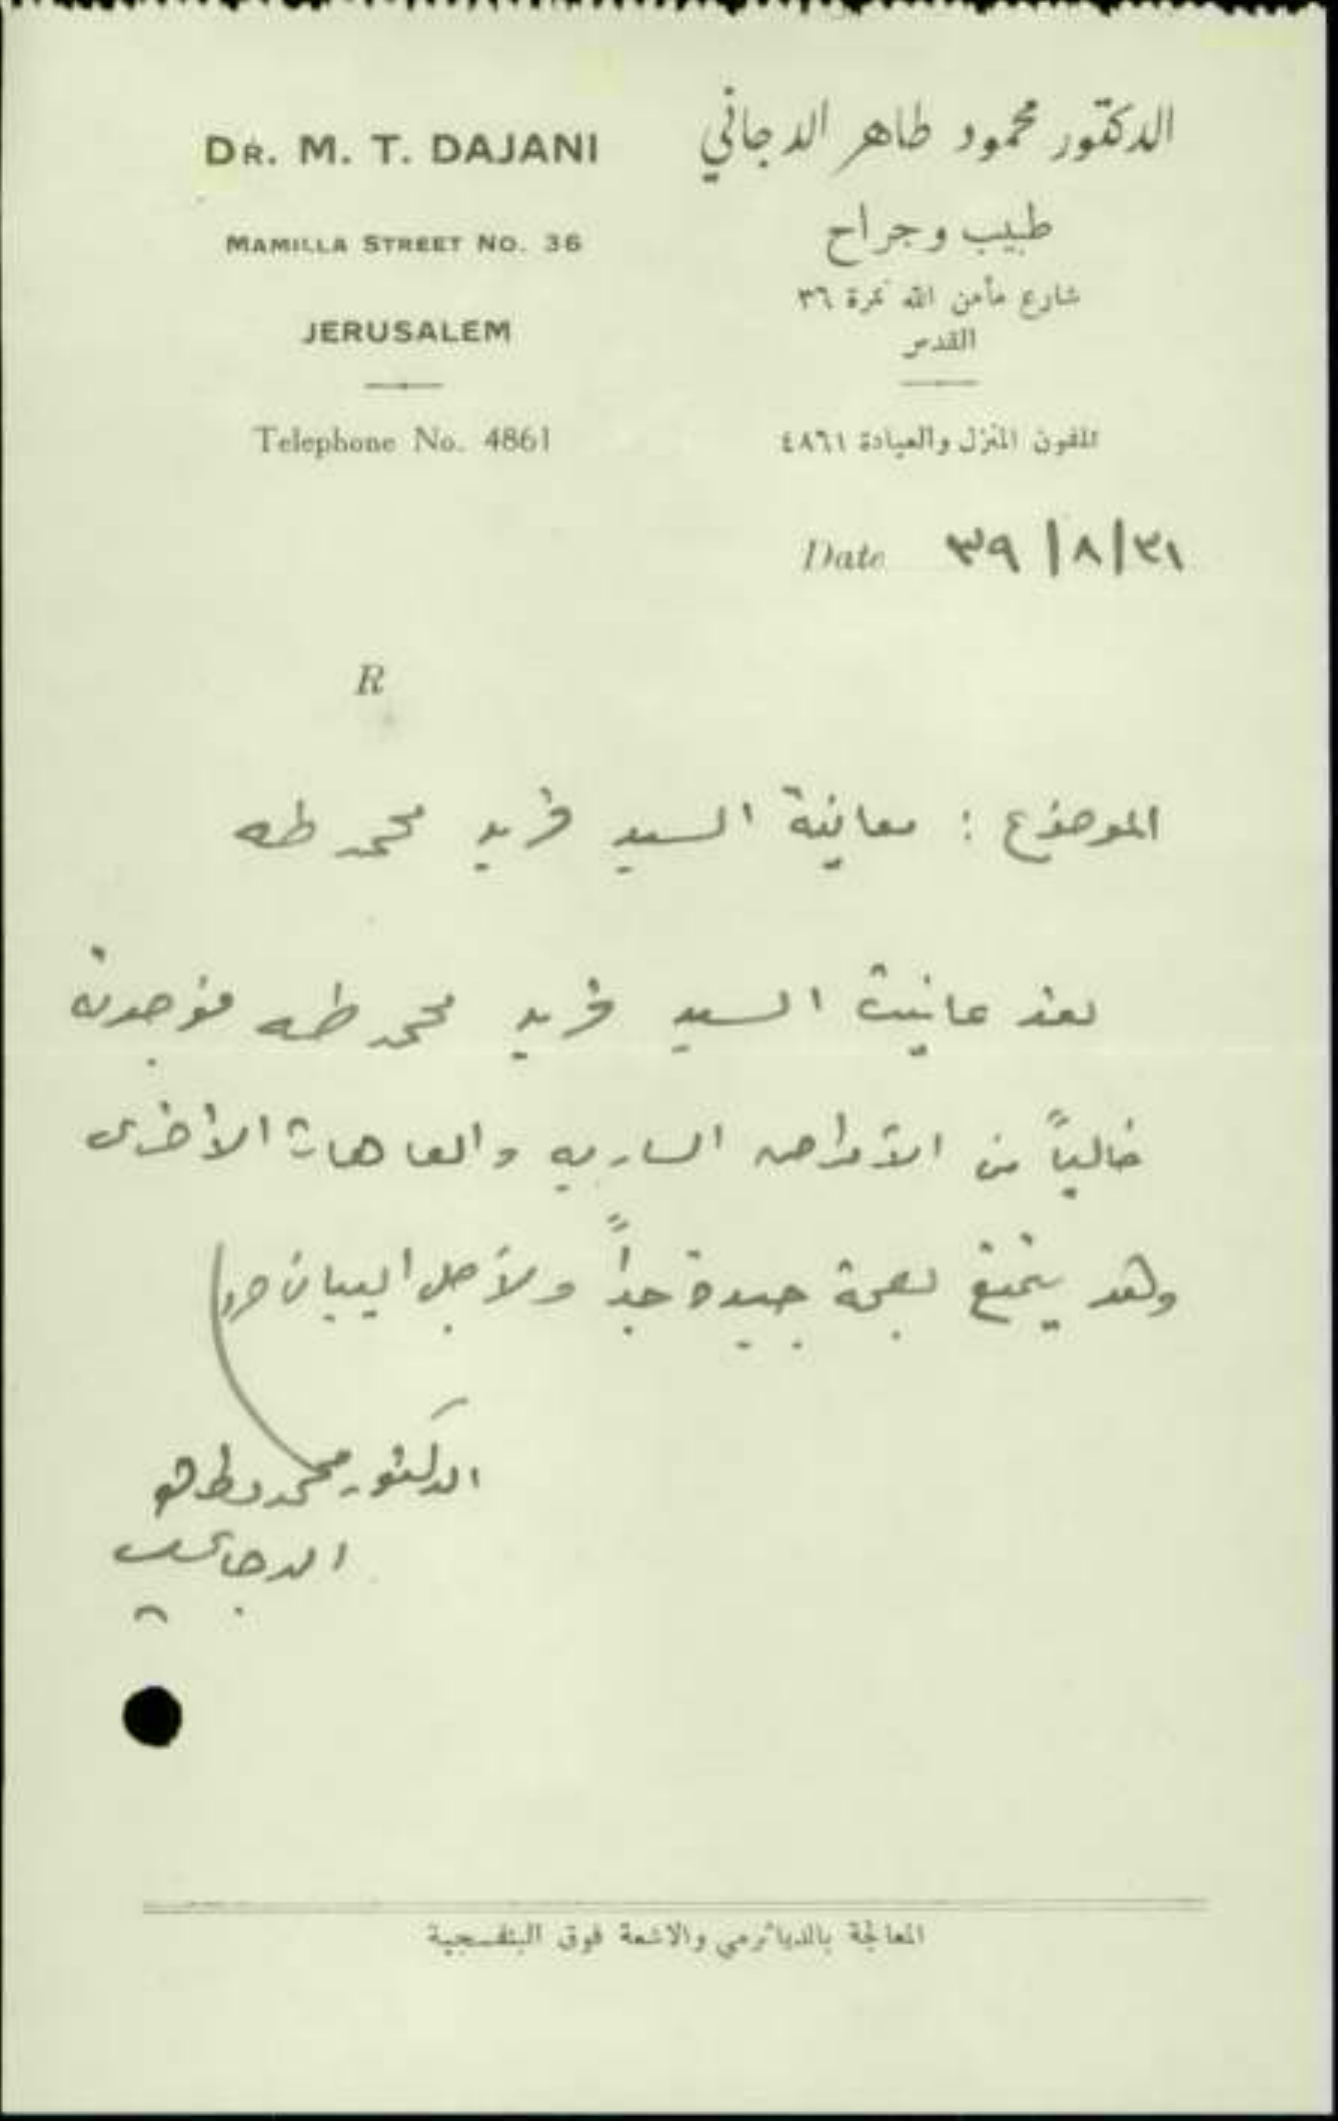 DR. M. T. DAJANI
MAMILLA STREET NO. 36
JERUSALEM
Telephone No. 4861
الدكتور محمود طاهر الدجاني
طبيب وجراح
شارع مأمن الله نمرة ٣٦
القدس
تلفون المنزل والعيادة ٤٨٦١
Date ٣١/٨/٣٩
R
الموضوع : معاينة السيد فريد محمد طه
لقد عاينت السيد فريد محمد طه فوجدته
خالياً من الأمراض الساريه والعاهات الأخرى
وهو يتمتع بصحة جيدة جداً ولأجل البيان حرر
الدكتور محمود طاهر
الدجاني
المعالجة بالدياثرمي والاشعة فوق البنفسجية